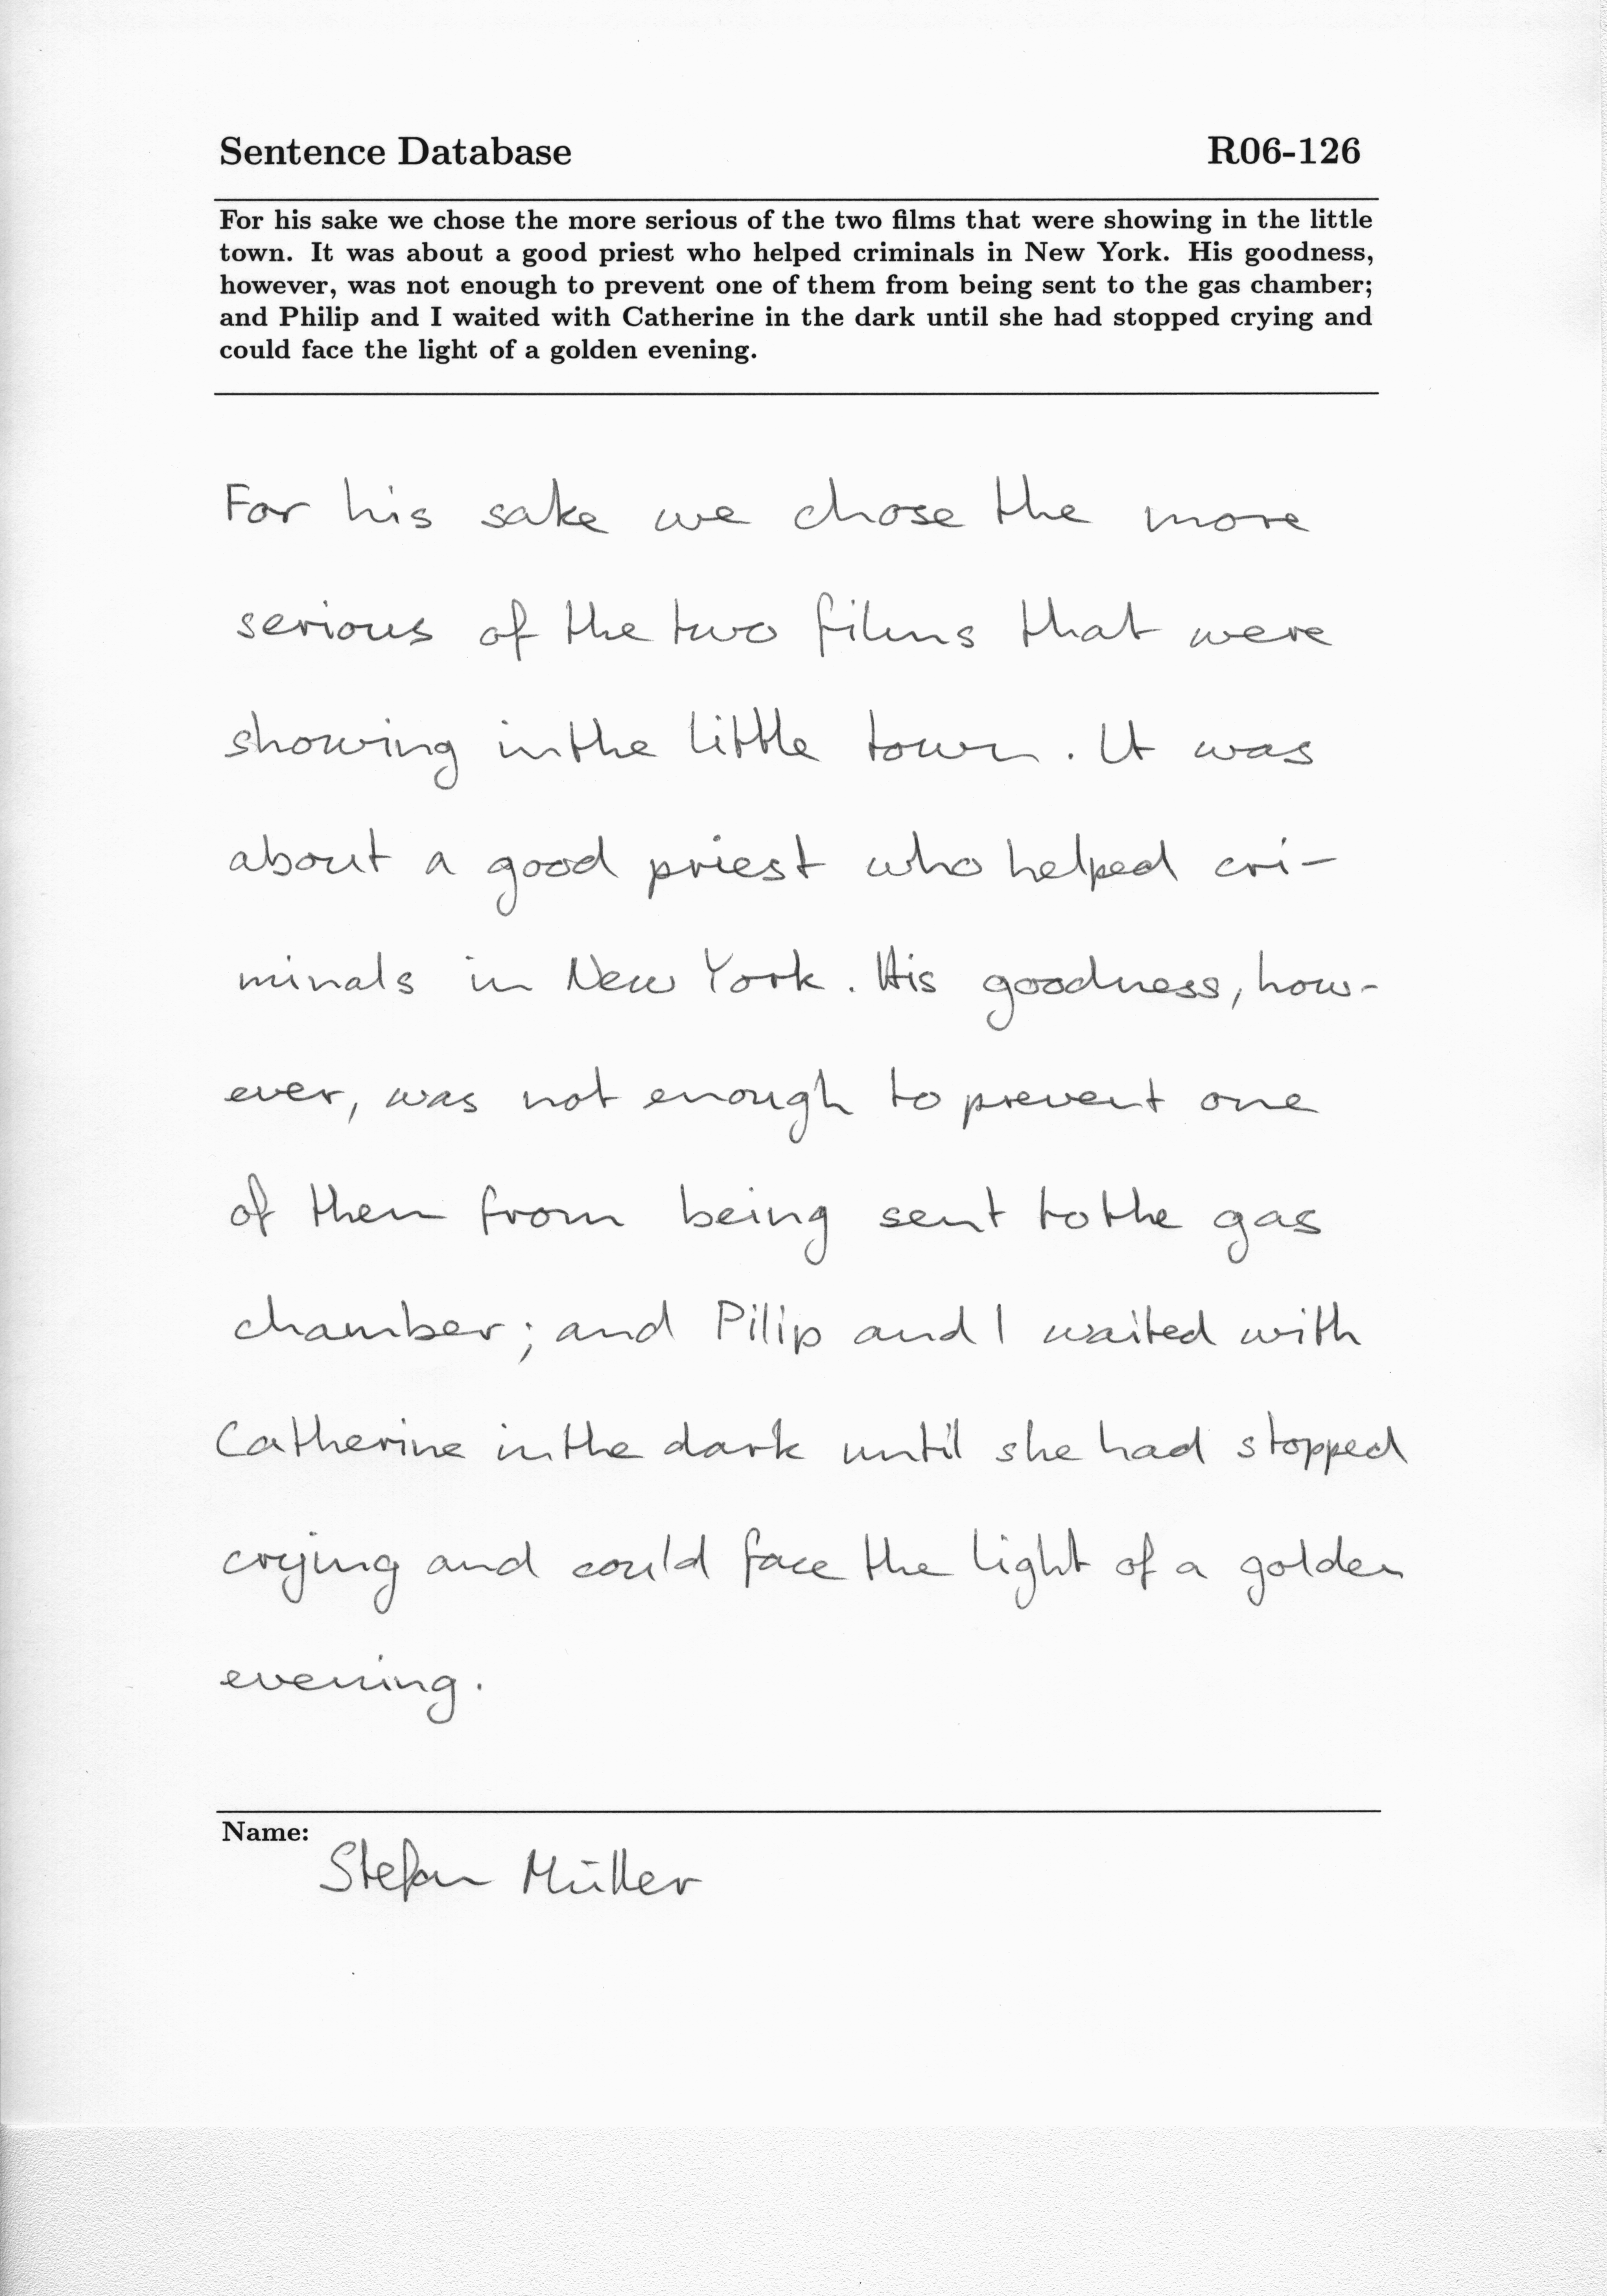 Sentence Database R06-126
For his sake we chose the more serious of the two films that were showing in the little
town. It was about a good priest who helped criminals in New York. His goodness,
however, was not enough to prevent one of them from being sent to the gas chamber;
and Philip and I waited with Catherine in the dark until she had stopped crying and
could face the light of a golden evening.
For his sake we chose the more
serious of the two films that were
showing in the little town. It was
about a good priest who helped cri-
minals in New York. His goodness, how-
ever, was not enough to prevent one
of them from being sent to the gas
chamber; and Pilip and I waited with
Catherine in the dark until she had stopped
crying and could face the light of a golden
evening.
Name:
Stefan Müller